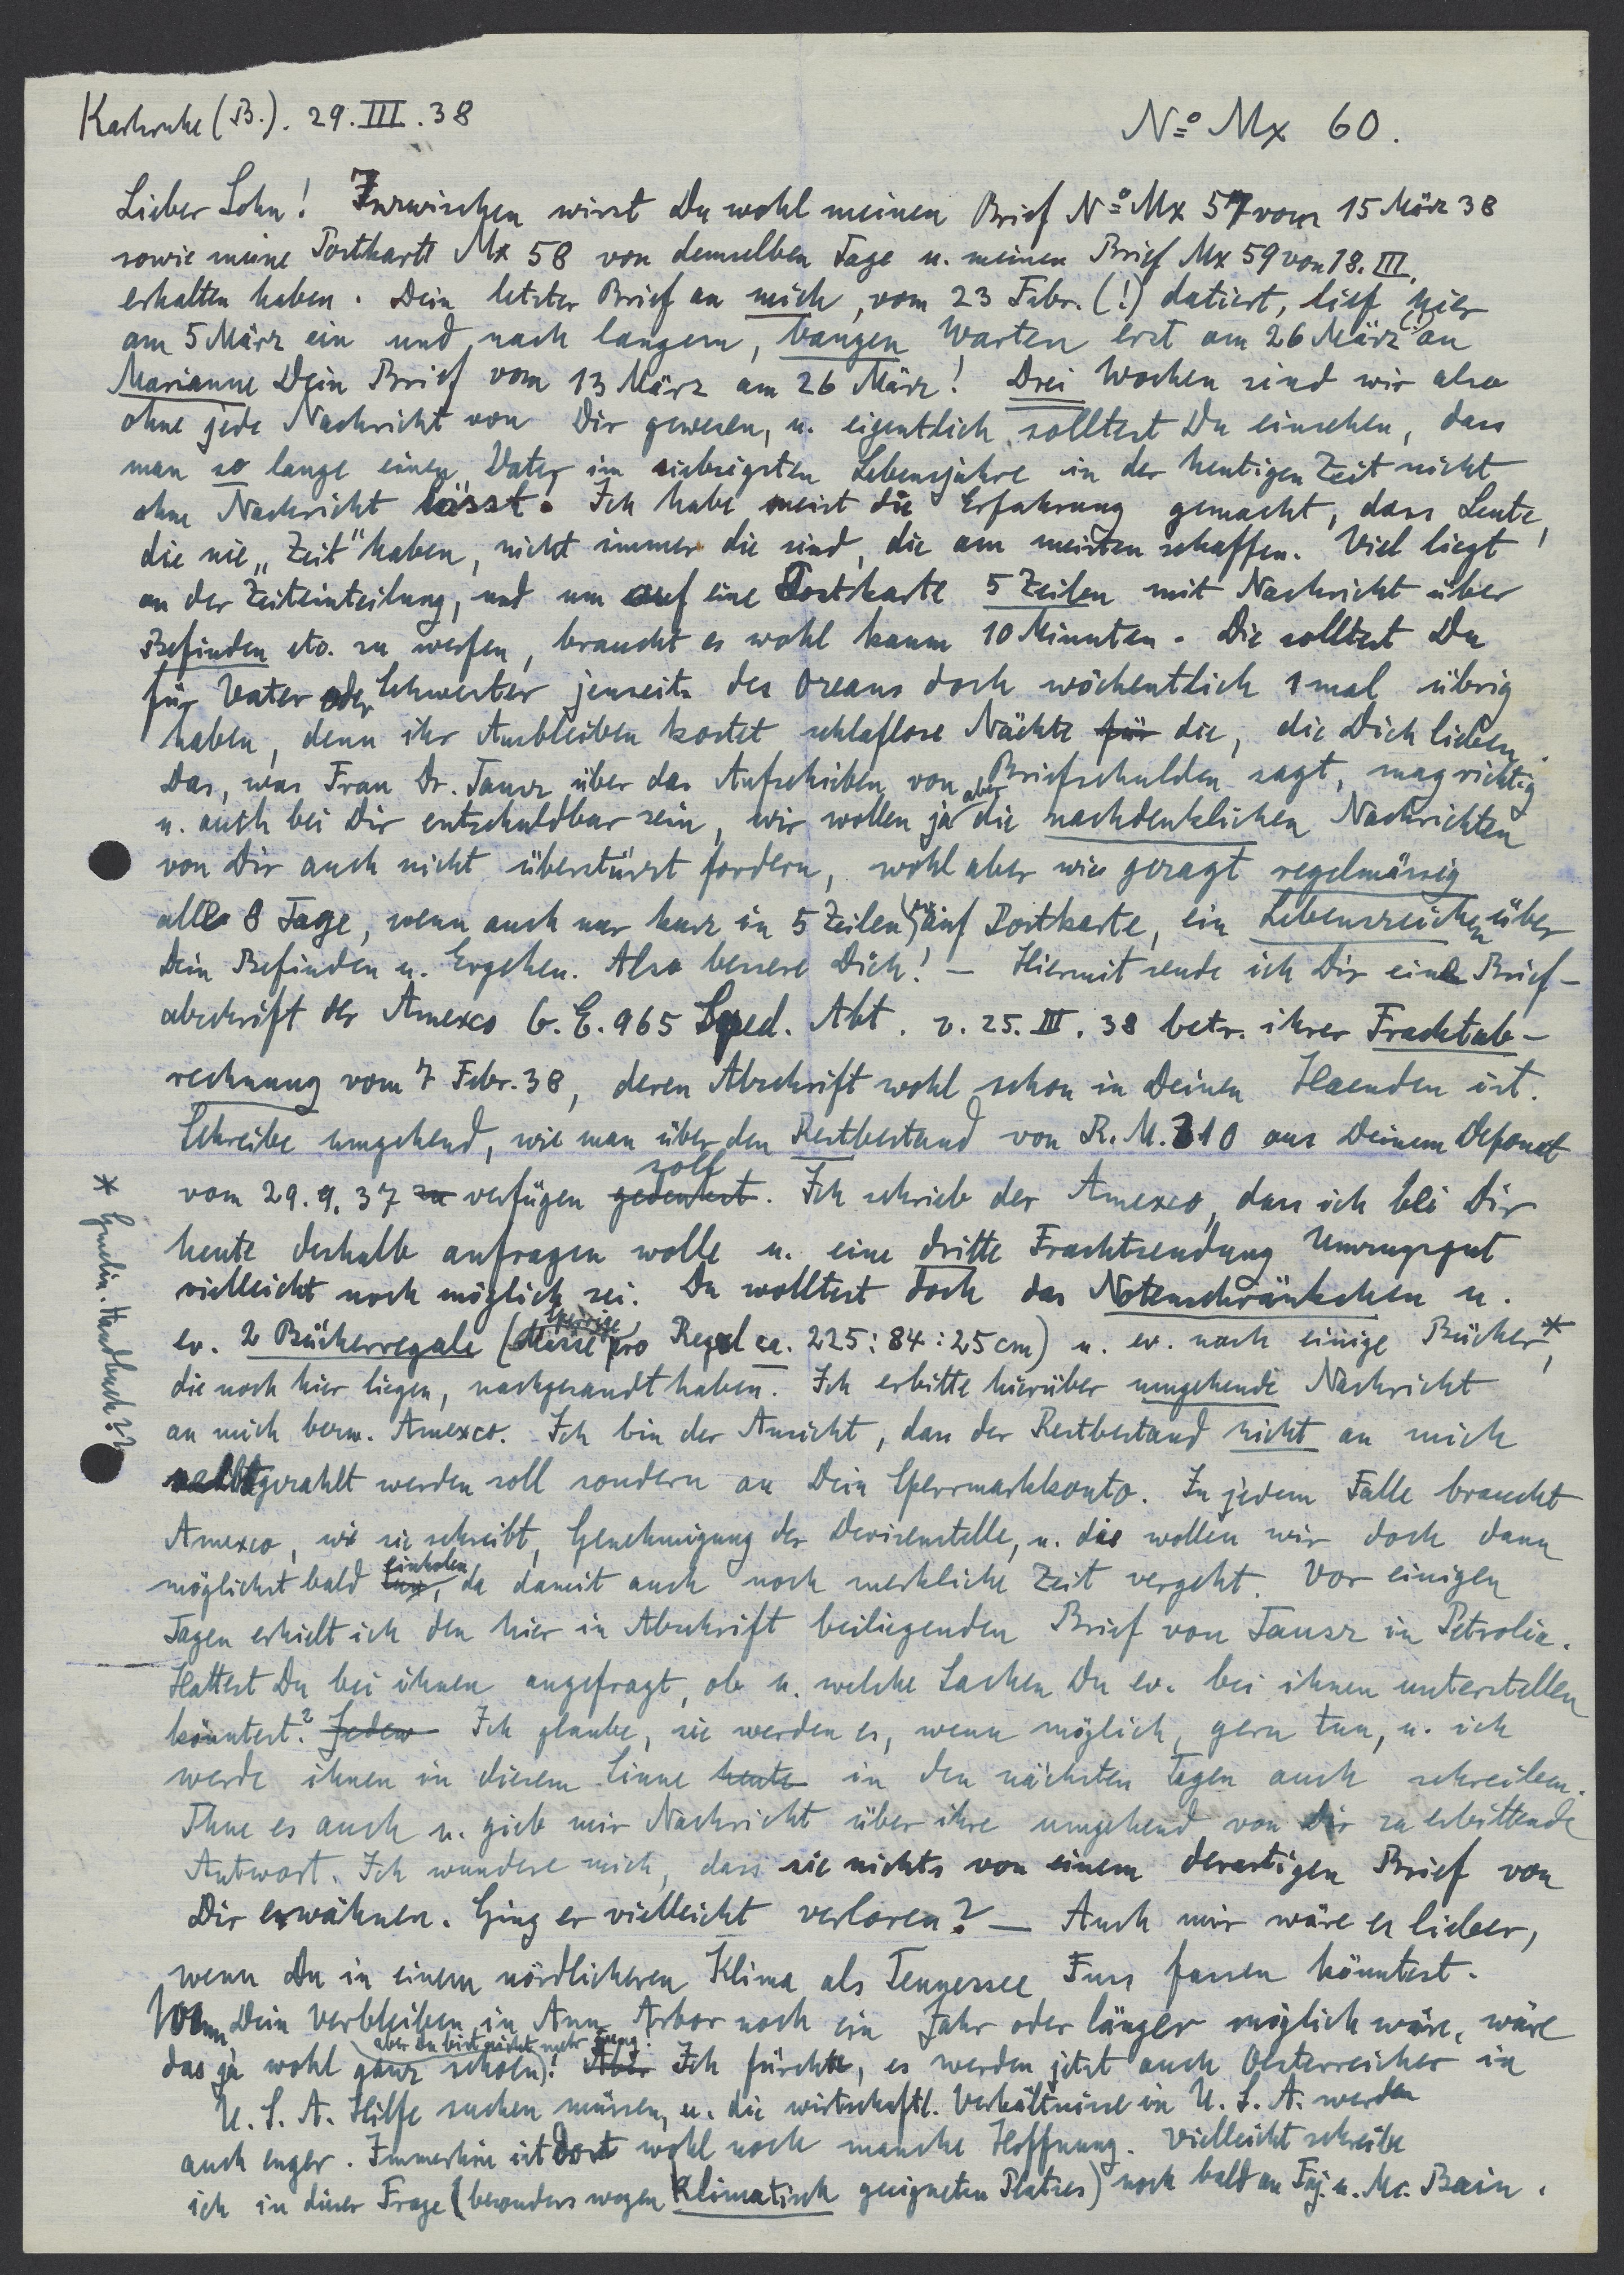 Karlsruhe (B.). 29.III.38
No Mx 60.
Lieber Sohn! Inzwischen wirst Du wohl meinen Brief No Mx 57 vom 15 März 38
sowie meine Postkarte Mx 58 von demselben Tage u. meinen Brief Mx 59 von 18. III.
erhalten haben. Dein letzter Brief an mich, vom 23 Febr. (!) datiert, lief hier
am 5 März ein und nach langem, bangen Warten erst am 26 März (!) an
Marianne Dein Brief vom 13 März am 26 März! Drei Wochen sind wir also
ohne jede Nachricht von Dir gewesen, u. eigentlich solltest Du einsehen, dass
man so lange einen Vater im siebzigsten Lebensjahre in der heutigen Zeit nicht
ohne Nachricht lässt. Ich habe meist die Erfahrung gemacht, dass Leute,
die nie „Zeit" haben, nicht immer die sind, die am meisten schaffen. Viel liegt
an der Zeiteinteilung, und um auf eine Postkarte 5 Zeilen mit Nachricht über
Befinden etc. zu werfen, braucht es wohl kaum 10 Minuten. Die solltest Du
für Vater oder Schwester jenseits des Ozeans doch wöchentlich 1 mal übrig
haben, denn ihr Ausbleiben kostet schlaflose Nächte für die, die Dich lieben.
Das, was Frau Dr. Tausz über das Aufschieben von Briefschulden sagt, mag richtig
u. auch bei Dir entschuldbar sein, wir wollen ja aber die nachdenklichen Nachrichten
von Dir auch nicht überstürzt fordern, wohl aber wie gesagt regelmässig
alle 8 Tage, wenn auch nur kurz in 5 Zeilen auf Postkarte, ein Lebenszeichen über
Dein Befinden u. Ergehen. Also bessere Dich! – Hiermit sende ich Dir eine Brief-
abschrift der Amexco G.E. 965 Sped. Abt. v. 25. III. 38 betr. ihrer Frachtab-
rechnung vom 7 Febr. 38, deren Abschrift wohl schon in Deinen Haenden ist.
Schreibe umgehend, wie man über den Restbestand von R.M. 310 aus Deinem Deponat
vom 29.9.37 zu verfügen gedenkst soll. Ich schrieb der Amexco, dass ich bei Dir
heute deshalb anfragen wolle u. eine dritte Frachtsendung Umzugsgut
vielleicht noch möglich sei. Du wolltest doch das Notenschränkchen u.
ev. 2 Bücherregale (Masse sperrige pro Regal ca. 225:84:25 cm) u. ev. noch einige Bücher*,
die noch hier liegen, nachgesandt haben. Ich erbitte hierüber umgehende Nachricht
an mich bezw. Amexco. Ich bin der Ansicht, dass der Restbestand nicht an mich
gezahlt werden soll sondern an Dein Sperrmarkkonto. In jedem Falle braucht
Amexco, wie sie schreibt, Genehmigung der Devisenstelle, u. die wollen wir doch dann
möglichst bald tun einholen, da damit auch noch merkliche Zeit vergeht. Vor einigen
Tagen erhielt ich den hier in Abschrift beiliegenden Brief von Tausz in Petrolia.
Hattest Du bei ihnen angefragt, ob u. welche Sachen Du ev. bei ihnen unterstellen
könntest? Jedew Ich glaube, sie werden es, wenn möglich, gern tun, u. ich
werde ihnen in diesem Sinne heute in den nächsten Tagen auch schreiben.
Thue es auch u. gieb mir Nachricht über ihre umgehend von Dir zu erbittende
Antwort. Ich wundere mich, dass sie nichts von einem derartigen Brief von
Dir erwähnen. Ging er vielleicht verloren? – Auch mir wäre es lieber,
wenn Du in einem nördlicheren Klima als Tennessee Fuss fassen könntest.
Wenn Dein Verbleiben in Ann Arbor noch ein Jahr oder länger möglich wäre, wäre
das ja wohl ganz schoen (aber Du bist nicht mehr jung)! Aber Ich fürchte, es werden jetzt auch Oesterreicher in
U.S.A. Hilfe suchen müssen, u. die wirtschaftl. Verhältnisse in U.S.A. werden
auch enger. Immerhin ist dort wohl noch manche Hoffnung. Vielleicht schreibe
ich in dieser Frage (besonders wegen klimatisch geeigneten Platzes) noch bald an Faj. u. Mc. Bain.
* Gmelin. Handbuch??